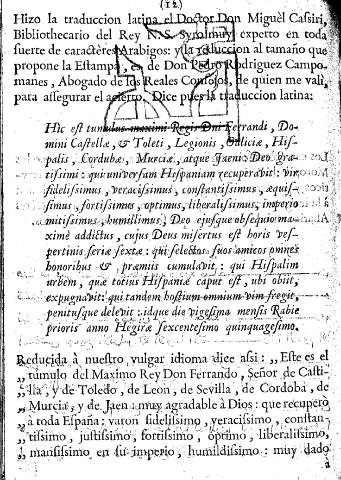 (12)
Hizo la traduccion latina el Doctor Don Miguèl Cassiri,
Bibliothecario del Rey N.S. Syro, muy experto en toda
suerte de caractères Arabigos: y la reduccion al tamaño que
propone la Estampa, es de Don Pedro Rodriguez Campo-
manes, Abogado de los Reales Consejos, de quien me valì,
para assegurar el acierto. Dice pues la traduccion latina:
Hic est tumulus maximi Regis Dni Ferrandi, Do-
mini Castellæ, & Toleti, Legionis, Galiciæ, His-
palis, Cordubæ, Murciæ, atque Jaeni: Deo gra-
tissimi: qui universam Hespaniam recuperavit: vir
fidelissimus, veracissimus, constantissimus, æquis-
simus, fortissimus, optimus, liberalissimus, imperio
mitissimus, humillimus, Deo ejusque obsequio ma-
ximè addictus, cujus Deus misertus est horis ves-
pertinis feriæ sextæ: qui selectos suos amicos omnes
honoribus & præmiis cumulavit: qui Hispalim
urbem, quæ totius Hispaniæ caput est, ubi obiit,
expugnavit: qui tandem hostium omnium vim fregit,
penitusque delevit: idque die vigesima mensis Rabie
prioris anno Hegiræ sexcentesimo quinquagesimo.
Reducida à nuestro vulgar idioma dice assi: ,,Este es el
,, tùmulo del Maximo Rey Don Ferrando, Señor de Casti-
,, lla, y de Toledo, de Leon, de Sevilla, de Cordoba, de
,, Murcia, y de Jaen: muy agradable à Dios: que recuperò
,, à toda España: varon fidelissimo, veracissimo, constan-
,, tissimo, justissimo, fortissimo, optimo, liberalissimo,
,, mansissimo en su imperio, humildissimo: muy dado
a